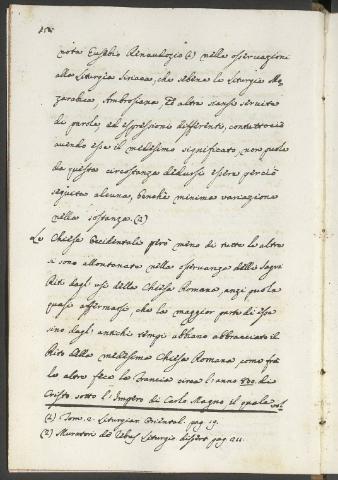 nota Eusebio Renaudozio (1) nelle osservazioni
alla Liturgia Siriaca, che sebene la Liturgia Mo=
zarabica, Ambrosiana, ed altre siansi servite
di parole, ed espressioni differenti, contuttociò
avendo esse il medesimo significato, non puole
da questa circostanza dedursi essere perciò
seguita alcuna, benchè minima variazione
nella sostanza. (2)
Le Chiese Occidentali però meno di tutte le altre
si sono allontanate nella osservanza delli sagri
Riti dagl'usi della Chiesa Romana, anzi puole
quasi affermarsi che la maggior parte di esse
sino dagl'antichi tempi abbiano abbracciato il
Rito della medesima Chiesa Romana, come frà
le altre fece la Francia circa l'anno 800 di
Cristo sotto l'Impero di Carlo Magno, il quale
(1) Tom. 2. Liturgiar. Oriental. pag. 19.
(2) Muratori de Rebus Liturgic. dissert. pag. 211.